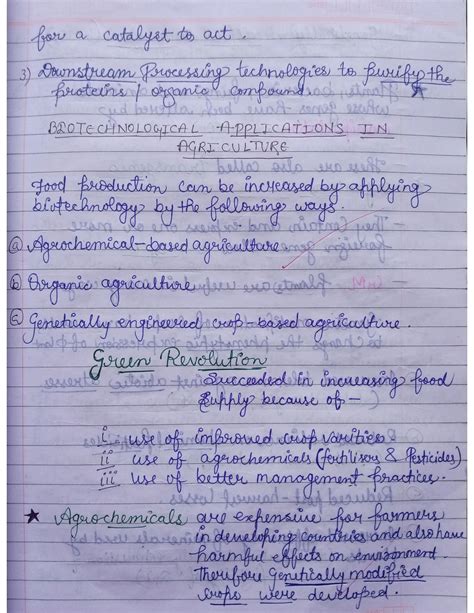 for a catalyst to act.
3) Downstream Processing technologies to purify the
proteins / organic compound.
BIOTECHNOLOGICAL APPLICATIONS IN
AGRICULTURE
Food production can be increased by applying
biotechnology by the following ways.
(a) Agrochemical-based agriculture
(b) Organic agriculture
(c) Genetically engineered crop-based agriculture.
Green Revolution
Succeeded in increasing food
supply because of -
i use of improved crop varities
ii use of agrochemicals (fertilisors & Pesticides)
iii use of better management practices.
★ Agrochemicals are expensive for farmers
in developing countries and also have
harmful effects on environment.
Therefore Genetically modified
crops were developed.